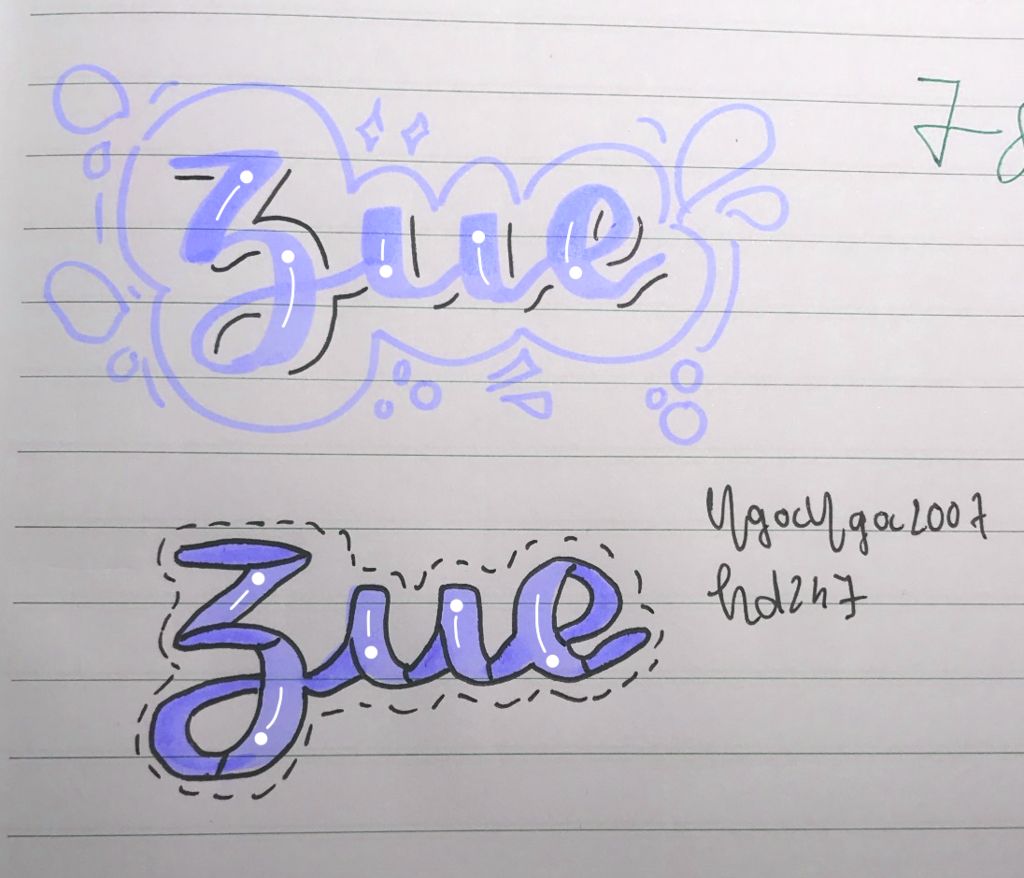 Zue
Zue
NgocNgoc2007
hd247